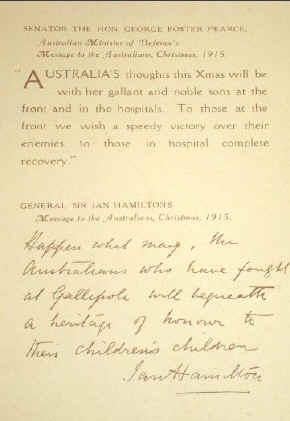 SENATOR THE HON. GEORGE FOSTER PEARCE,
Australian Minister of Defence's
Message to the Australians, Christmas, 1915.
"AUSTRALIA'S thoughts this Xmas will be
with her gallant and noble sons at the
front and in the hospitals. To those at the
front we wish a speedy victory over their
enemies, to those in hospital complete
recovery."
GENERAL SIR IAN HAMILTON'S
Message to the Australians, Christmas, 1915.
Happen what may, the
Australians who have fought
at Gallipoli will bequeath
a heritage of honour to
their children's children
Ian Hamilton